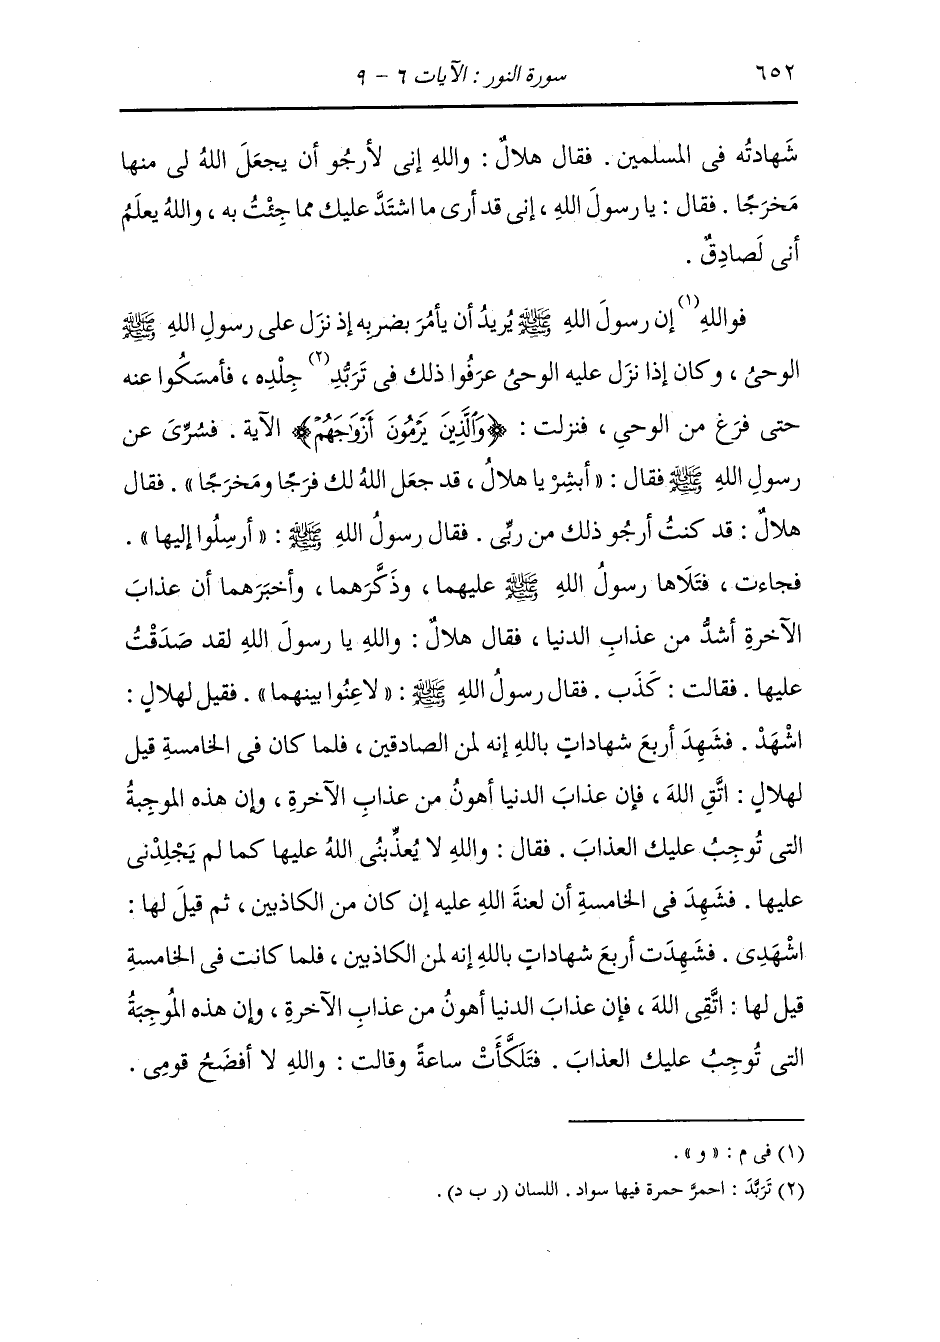 ٦٥٢ سورة النور : الآيات ٦ - ٩
شَهادتُه فى المسلمين . فقال هلالٌ : واللهِ إنى لأرجُو أن يجعَلَ اللهُ لى منها
مَخرَجًا . فقال : يا رسولَ اللهِ ، إنى قد أرى ما اشتَدَّ عليك مما جِئْتُ به ، واللهُ يعلَمُ
أنى لَصادِقٌ .
فواللهِ(١) إن رسولَ اللهِ ﷺ يُريدُ أن يأمُرَ بضربِه إذ نزَل على رسولِ اللهِ ﷺ
الوحىُ ، وكان إذا نزَل عليه الوحىُ عرَفُوا ذلك فى تَرَبُّدِ(٢) جِلْدِه ، فأمسَكُوا عنه
حتى فرَغ من الوحىِ ، فنزلت : ﴿وَٱلَّذِينَ يَرۡمُونَ أَزۡوَٰجَهُمۡ﴾ الآية . فسُرِّىَ عن
رسولِ اللهِ ﷺ فقال : « أبشِرْ يا هلالُ ، قد جعَل اللهُ لك فرَجًا ومَخرَجًا » . فقال
هلالٌ : قد كنتُ أرجُو ذلك من ربِّى . فقال رسولُ اللهِ ﷺ : « أرسِلُوا إليها » .
فجاءت ، فتَلَاها رسولُ اللهِ ﷺ عليهما ، وذَكَّرَهما ، وأخبَرَهما أن عذابَ
الآخرةِ أشدُّ من عذابِ الدنيا ، فقال هلالٌ : واللهِ يا رسولَ اللهِ لقد صَدَقْتُ
عليها . فقالت : كَذَب . فقال رسولُ اللهِ ﷺ : « لاعِنُوا بينهما » . فقيل لهلالٍ :
اشْهَدْ . فشَهِدَ أربعَ شهاداتٍ باللهِ إنه لمن الصادقين ، فلما كان فى الخامسةِ قيل
لهلالٍ : اتَّقِ اللهَ ، فإن عذابَ الدنيا أهونُ من عذابِ الآخرةِ ، وإن هذه الموجِبةُ
التى تُوجِبُ عليك العذابَ . فقال : واللهِ لا يُعذِّبنُى اللهُ عليها كما لم يَجْلِدْنى
عليها . فشَهِدَ فى الخامسةِ أن لعنةَ اللهِ عليه إن كان من الكاذبين ، ثم قيلَ لها :
اشْهَدِى . فشَهِدَت أربعَ شهاداتٍ باللهِ إنه لمن الكاذبين ، فلما كانت فى الخامسةِ
قيل لها : اتَّقِى اللهَ ، فإن عذابَ الدنيا أهونُ من عذابِ الآخرةِ ، وإن هذه المُوجِبَةُ
التى تُوجِبُ عليك العذابَ . فتَلَكَّأَتْ ساعةً وقالت : واللهِ لا أفضَحُ قومِى .
(١) فى م : « و » .
(٢) تَرَبَّدَ : احمرَّ حمرة فيها سواد . اللسان (ر ب د) .